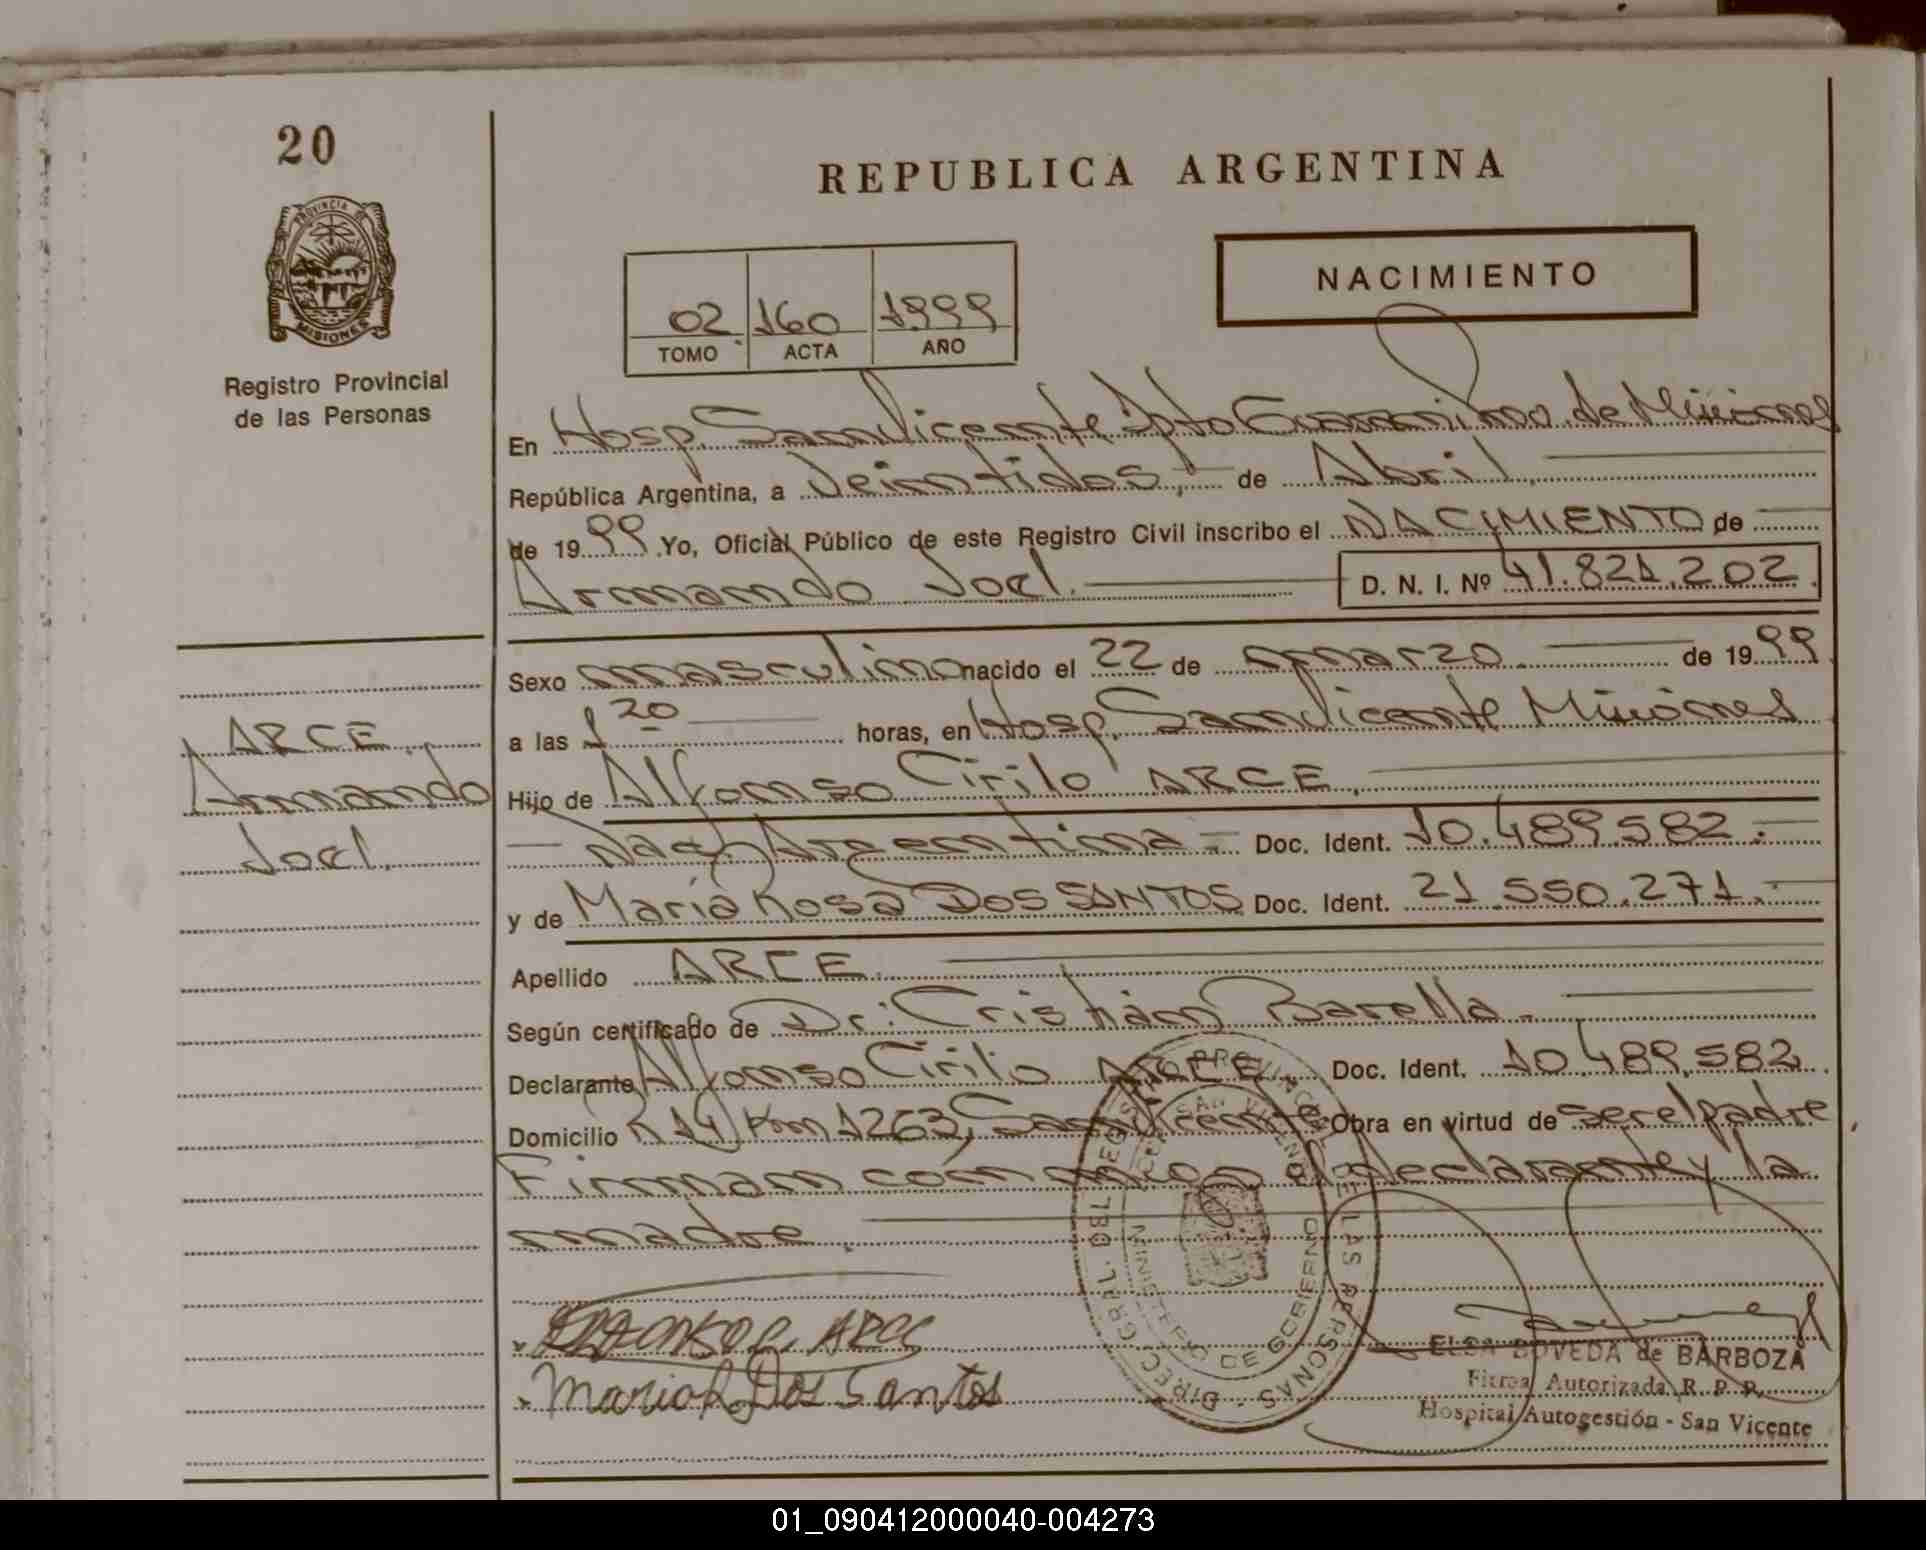 20
PROVINCIA DE
MISIONES
Registro Provincial
de las Personas
REPUBLICA ARGENTINA
NACIMIENTO
02 160 1999
TOMO ACTA AÑO
En Hosp. San Vicente Dpto Guaraní Prov. de Misiones
República Argentina, a Veintidos, de Abril
de 1999 Yo, Oficial Público de este Registro Civil inscribo el NACIMIENTO de
Armando Joel. D. N. I. Nº 41.821.202
Sexo masculino nacido el 22 de marzo de 1999
a las 1 20 horas, en Hosp. San Vicente Misiones
Hijo de Alfonso Cirilo ARCE,
Nac. Argentina Doc. Ident. 10.489.582.
y de María Rosa Dos SANTOS Doc. Ident. 21.550.271.
Apellido ARCE.
Según certificado de Dr: Cristian Barella
Declarante Alfonso Cirilo ARCE Doc. Ident. 10.489.582
Domicilio R 14 Km 1263, San Vicente Obra en virtud de ser el padre
Firman conmigo el declarante y la
madre.
ARCE
Armando
Joel.
ARCE
Maria R Dos Santos
DIRECC. GRAL. DEL REGISTRO PROVINCIAL DE LAS PERSONAS
SAN VICENTE
MINISTERIO DE GOBIERNO
ELSA BOVEDA de BARBOZA
Firma Autorizada R. P. P.
Hospital Autogestión - San Vicente
01_090412000040-004273